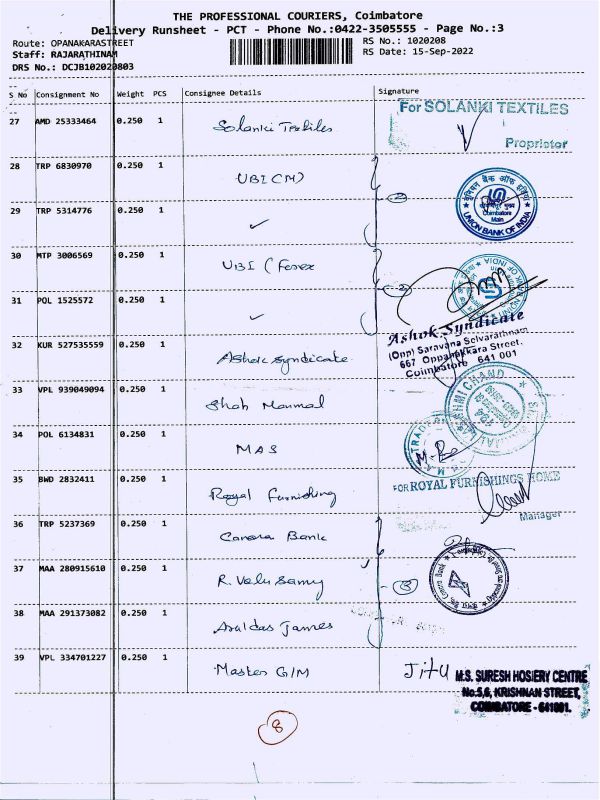 THE PROFESSIONAL COURIERS, Coimbatore
Delivery Runsheet - PCT - Phone No.:0422-3505555 - Page No.:3
Route: OPANAKARASTREET
RS No.: 1020208
Staff: RAJARATHINAM
RS Date: 15-Sep-2022
DRS No.: DCJB102020803
S No Consignment No Weight PCS Consignee Details Signature
27 AMD 25333464 0.250 1 Solanki Textiles
For SOLANKI TEXTILES
Proprietor
28 TRP 6830970 0.250 1 UBI (M)
29 TRP 5314776 0.250 1 ✓
2
Coimbatore
Main
UNION BANK OF INDIA
30 MTP 3006569 0.250 1 UBI (Forex
31 POL 1525572 0.250 1 ✓
2
32 KUR 527535559 0.250 1 Ashok Syndicate
Ashok Syndicate
(Opp) Saravana Selvarathnam
667 Oppanakkara Street,
Coimbatore 641 001
33 VPL 939049094 0.250 1 Shah Manmal
34 POL 6134831 0.250 1 MAS
35 BWD 2832411 0.250 1 Royal Furnishing
FOR ROYAL FURNISHINGS HOME
Manager
36 TRP 5237369 0.250 1 Canara Bank
37 MAA 280915610 0.250 1 R. Velu Samy
3
38 MAA 291373082 0.250 1 James
39 VPL 334701227 0.250 1 Master G/M
Jitu
M.S. SURESH HOSIERY CENTRE
No.5,6, KRISHNAN STREET,
COIMBATORE - 641001.
8